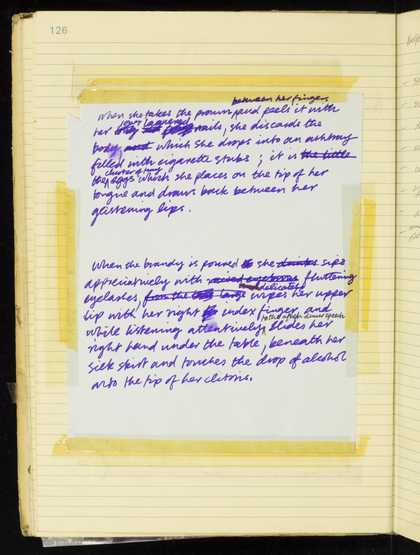 126
between her fingers
When she takes the prawn, and peels it with
long lacquered
her nails, she discards the
body which she drops into an ashtray
filled with cigarette stubs; it is the little
cluster of tiny
eggs which she places on the tip of her
tongue and draws back between her
glistening lips.
When the brandy is poured she drinks sips
appreciatively with raised eyebrows fluttering
eyelashes, from the large delicately wipes her upper
lip with her right index finger, and
to the after dinner speech
while listening attentively, slides her
right hand under the table, beneath her
silk skirt and touches the drop of alcohol
onto the tip of her clitoris.